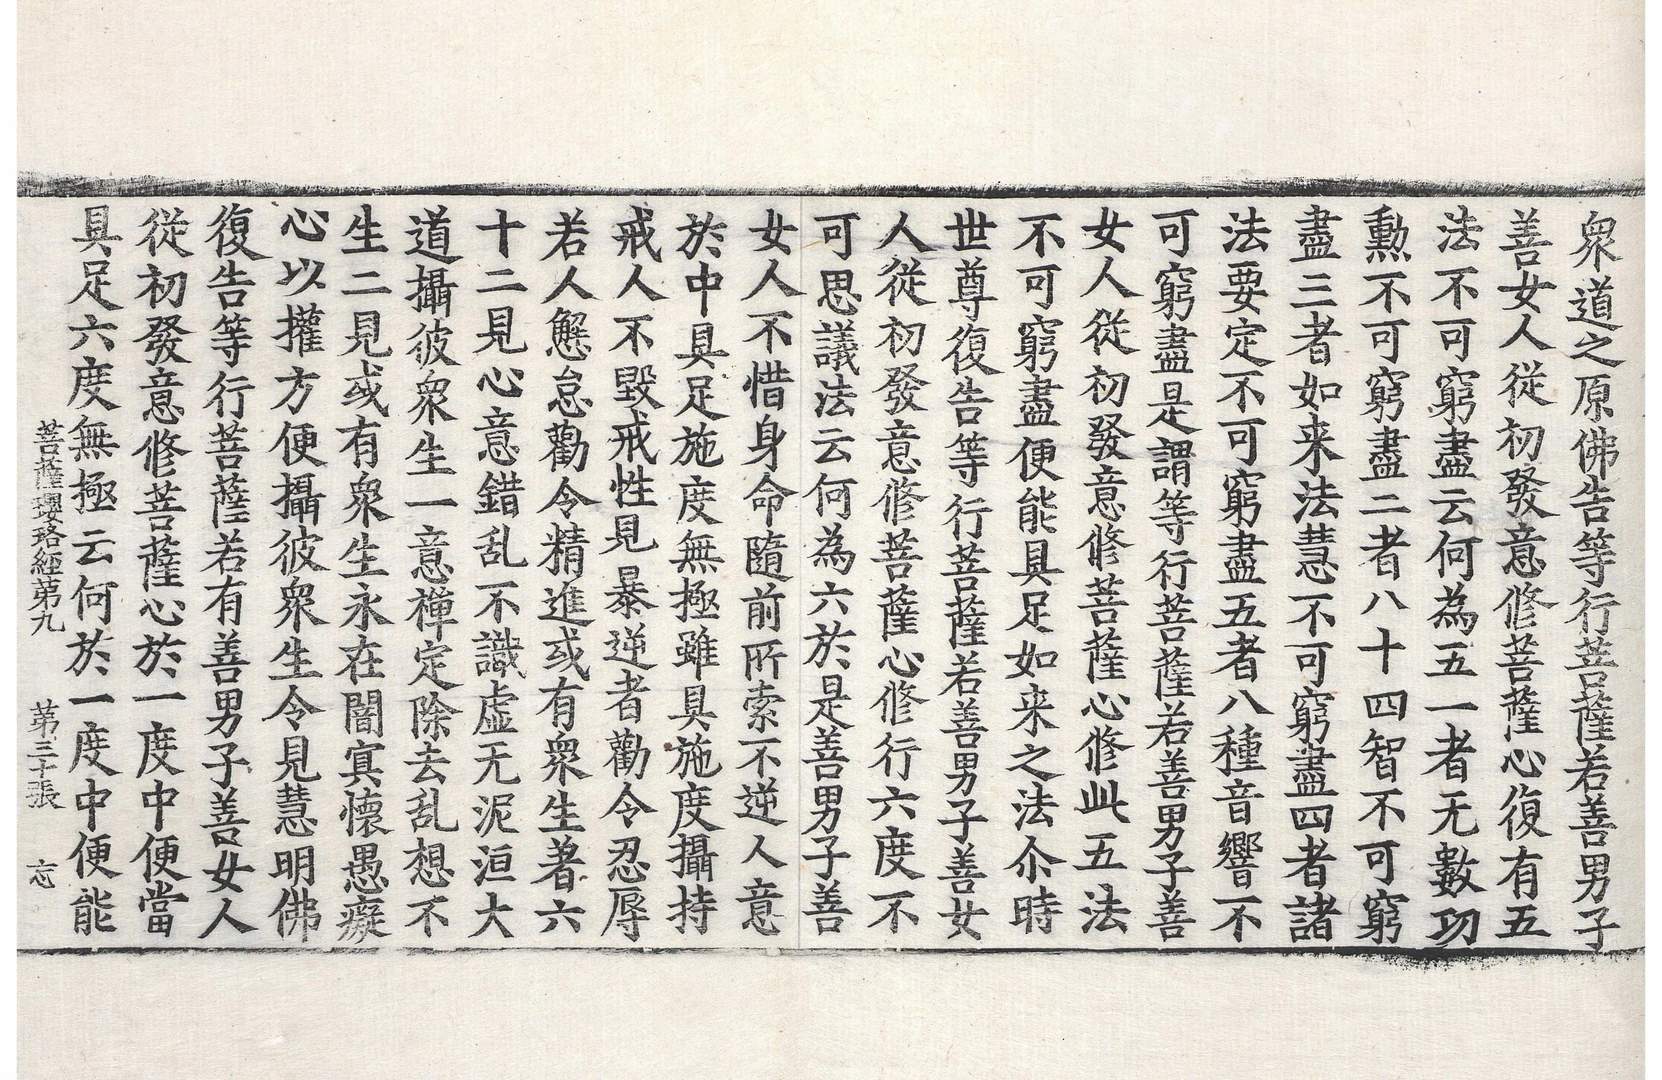 衆道之原佛告等行菩薩若善男子
善女人從初發意修菩薩心復有五
法不可窮盡云何為五一者无數功
勳不可窮盡二者八十四智不可窮
盡三者如来法慧不可窮盡四者諸
法要定不可窮盡五者八種音響不
可窮盡是謂等行菩薩若善男子善
女人從初發意修菩薩心修此五法
不可窮盡便能具足如来之法尒時
世尊復告等行菩薩若善男子善女
人從初發意修菩薩心修行六度不
可思議法云何為六於是善男子善
女人不惜身命隨前所索不逆人意
於中具足施度無極雖具施度攝持
戒人不毀戒性見暴逆者勸令忍辱
若人懈怠勸令精進或有衆生著六
十二見心意錯乱不識虛无泥洹大
道攝彼衆生一意禪定除去乱想不
生二見或有衆生永在闇冥懷愚癡
心以權方便攝彼衆生令見慧明佛
復告等行菩薩若有善男子善女人
從初發意修菩薩心於一度中便當
具足六度無極云何於一度中便能
菩薩瓔珞經第九 第三十張 忘